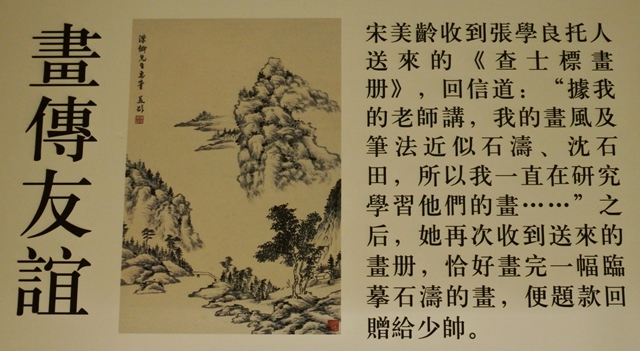 畫傳友誼
宋美齡收到張學良托人
送來的《查士標畫
册》，回信道：“據我
的老師講，我的畫風及
筆法近似石濤、沈石
田，所以我一直在研究
學習他們的畫……”之
后，她再次收到送來的
畫册，恰好畫完一幅臨
摹石濤的畫，便題款回
贈給少帥。